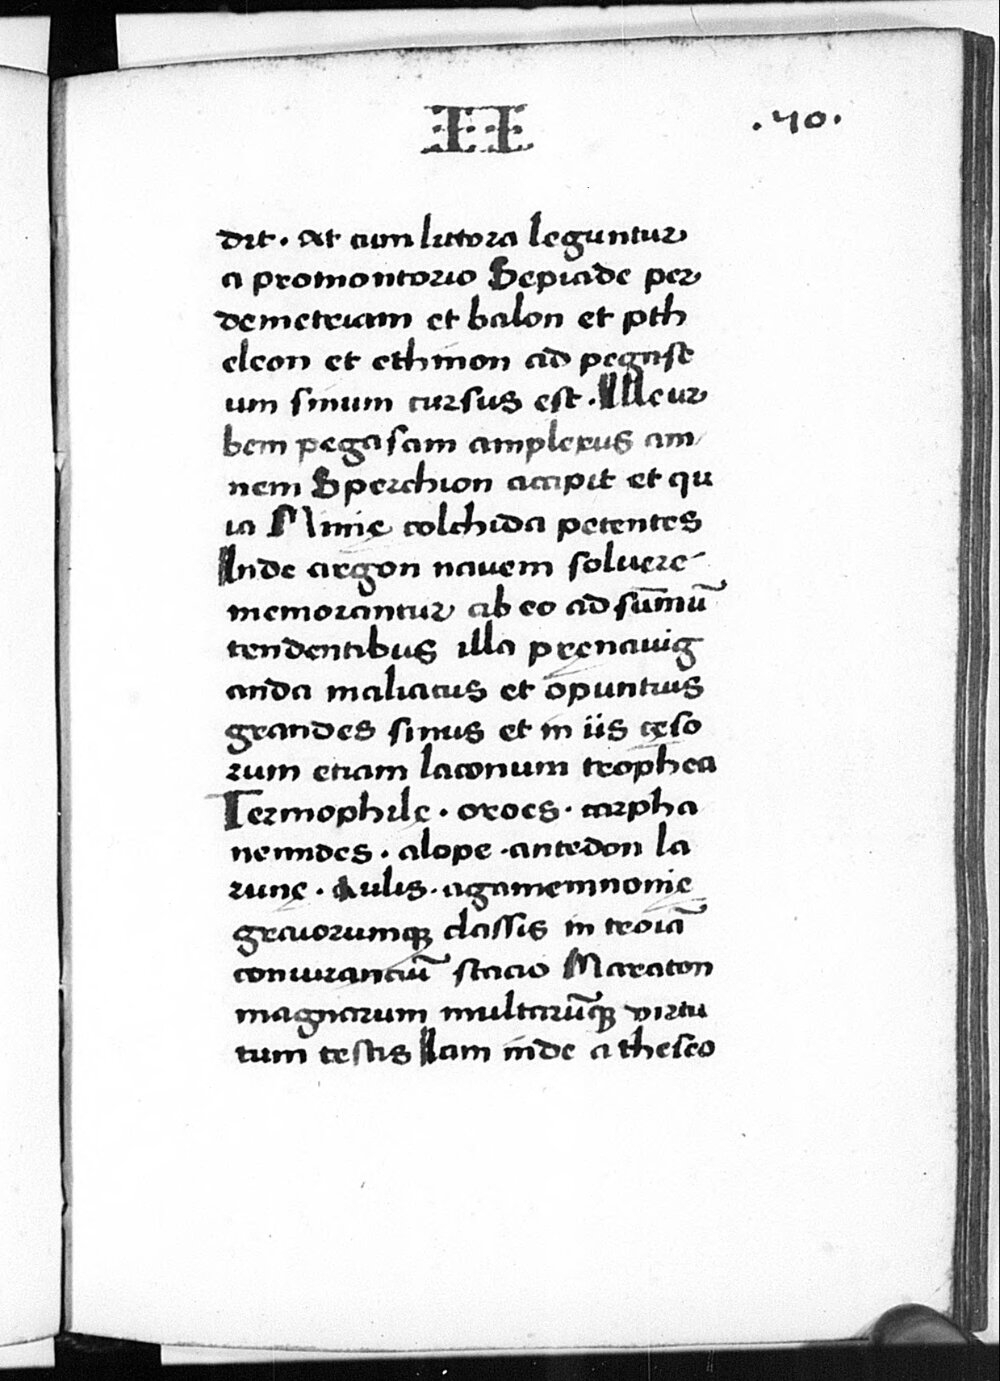 II .40.
dit. At cum littora leguntur
a promontorio Sepiade per
demetriam et balon et pth
eleon et ethinon ad pegase
um sinum cursus est. Ille ur
bem pegasam amplexus am
nem Sperchion accipit et qu
ia Minie colchida petentes
Inde argon navem solvere
memorantur ab eo ad sūmū
tendentibus illa pręnavig
anda maliacus et opuntius
grandes sinus et in iis cęso
rum etiam laconum trophea
Termophilę. oroes. carpha
nemides. alope. antedon la
runę. Aulis. agamemnonię
graiorumq classis in troiā
coniurantiū stacio Maraton
magnarum multarūq virtu
tum testis Iam inde a theseo